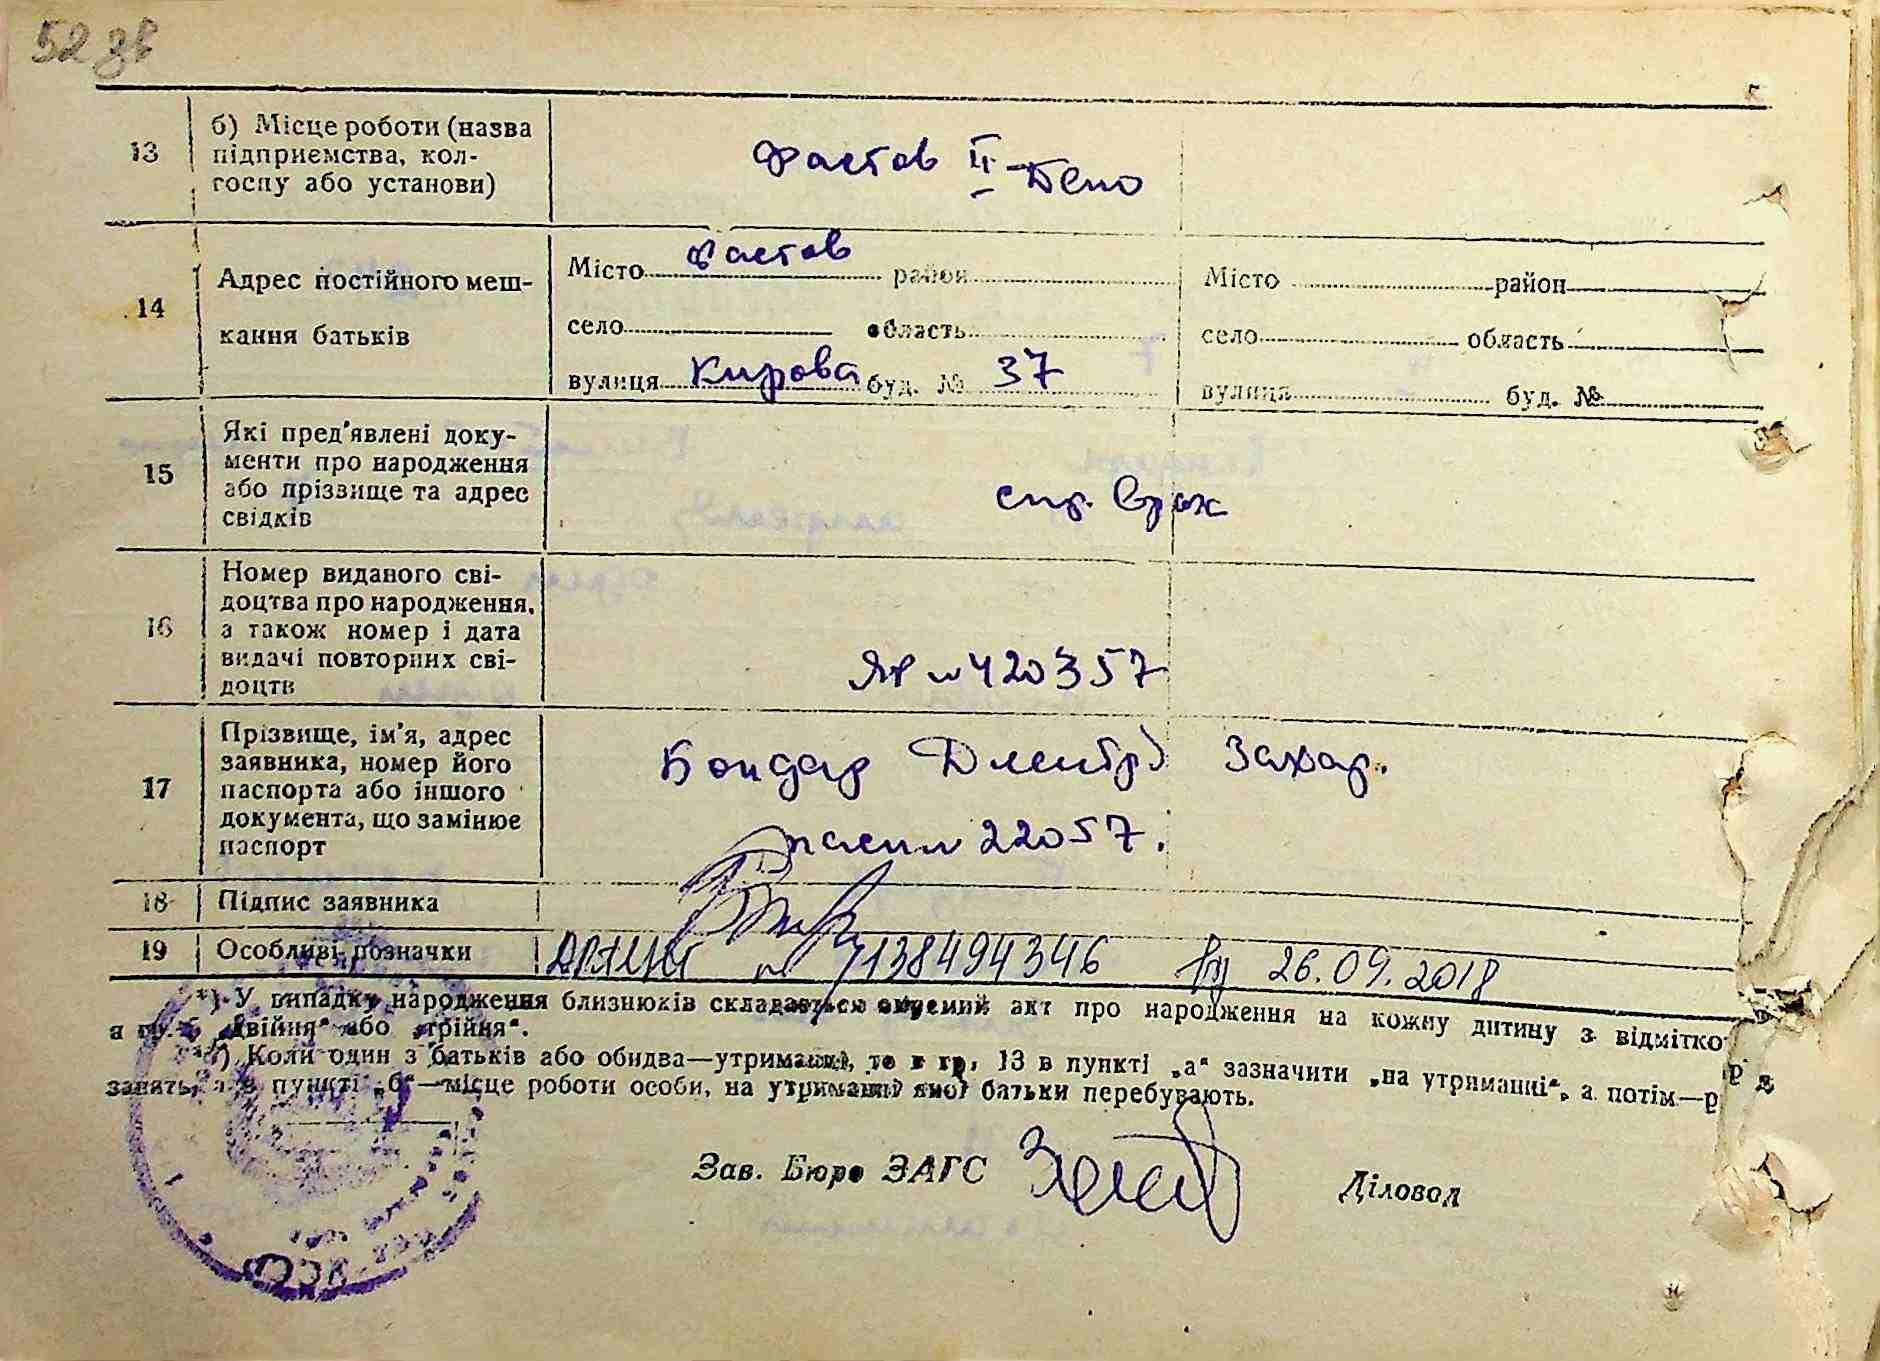 52 зв
13 б) Місце роботи (назва підприємства, кол-госпу або установи) Фастов II
14 Адрес постійного меш-кання батьків
Місто Фастов район
Місто район
село область
село область
вулиця Кирова буд. № 37
вулиця буд. №
15 Які пред'явлені доку-
менти про народження
або прізвище та адрес
свідків
спр. врач
16 Номер виданого сві-
доцтва про народження,
а також номер і дата
видачі повторних сві-
доцтв
№ 420357
17 Прізвище, ім'я, адрес
заявника, номер його
паспорта або іншого
документа, що замінює
паспорт
Бондар Дмитр Захар.
22057.
18 Підпис заявника
19 Особливі позначки № 71384494346 від 26.09.2018
*) У випадку народження близнюків складається окремий акт про народження на кожну дитину з відмітко
"двійня" або "трійня".
Коли один з батьків або обидва—утриманці, то в гр. 13 в пункті „а" зазначити „на утриманні", а потім—р
занять, а в пункті „б"—місце роботи особи, на утриманні якої батьки перебувають.
Зав. Бюро ЗАГС
Діловод